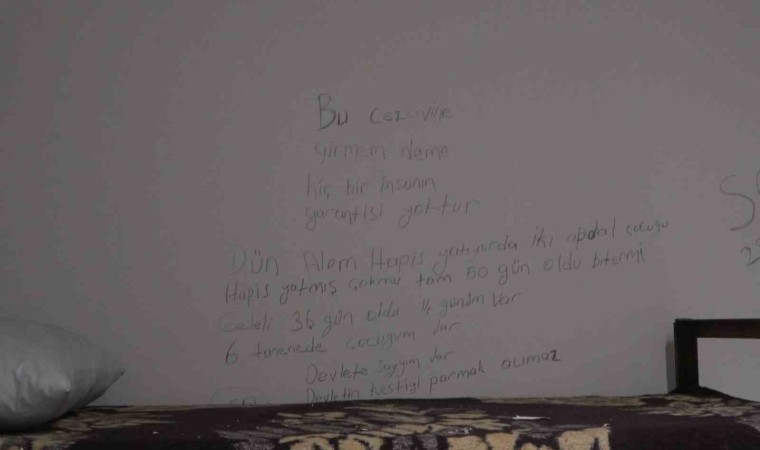 Bu cezavine
girmem deme
hiç bir insanın
garantisi yoktur
Dün Alem Hapis yatıyorda iki apdal çocuğu
Hapis yatmış çokmu tam 50 gün oldu bitermi
Geleli 36 gün oldu 14 günüm var
6 tanenede çocuğum var
Devlete saygım var
Devletin kestiği parmak acımaz